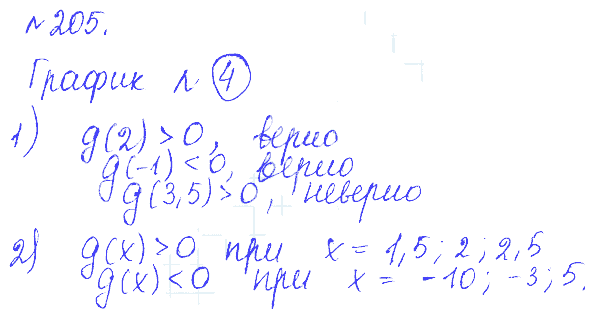 №205.
График № 4
1) g(2) > 0, верно
g(-1) < 0, верно
g(3,5) > 0, неверно
2) g(x) > 0 при x = 1,5; 2; 2,5
g(x) < 0 при x = -10; -3; 5.